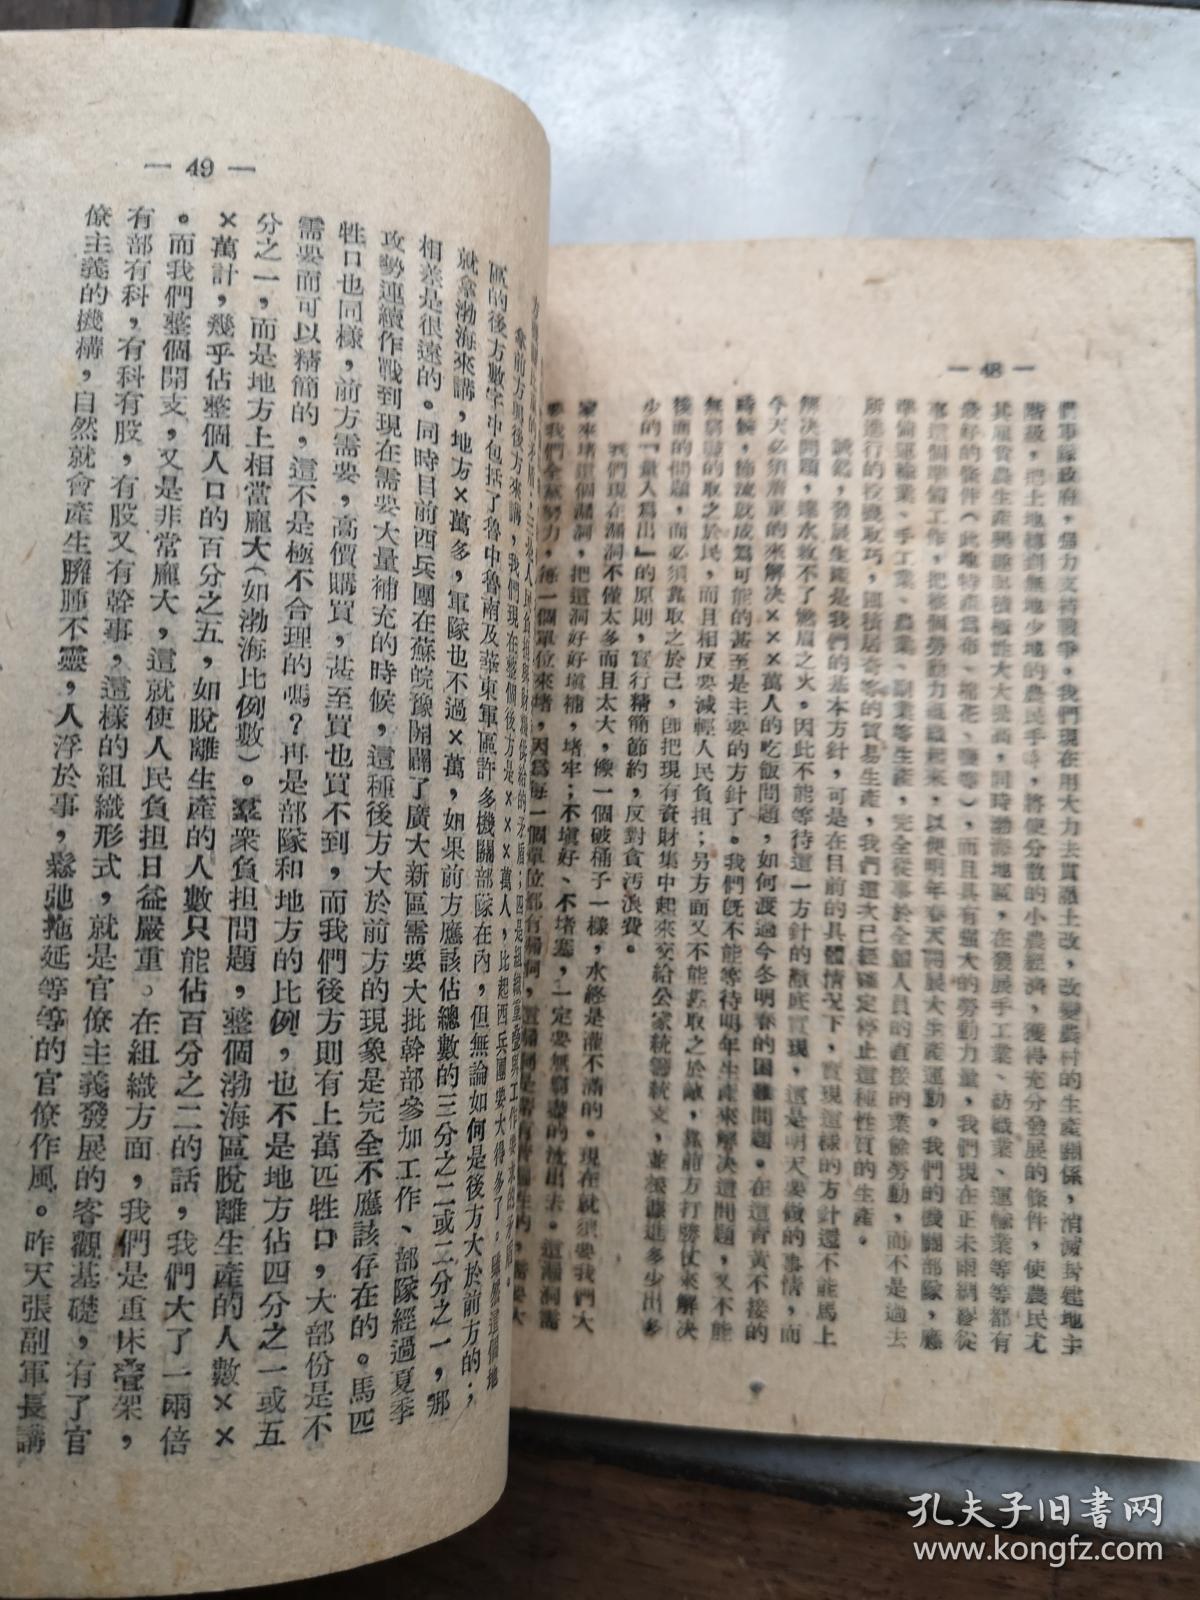 — 48 —
們軍隊政府,努力支持戰爭。我們現在用大力去貫澈土改,改變農村的生產關係,消滅封建地主
階級,把土地轉到無地少地的農民手,將使分散的小農經濟,獲得充分發展的條件,使農民尤
其雇貧農生產興趣與積極性大大提高,同時渤海地區,在發展手工業、紡織業、運輸業等等都有
最好的條件(此地特產爲布、棉花、鹽等),而且具有强大的勞動力量,我們現在正未雨綢繆從
事這個準備工作,把整個勞動力組織起來,以便明年春天開展大生產運動。我們的機關部隊,應
準備運輸業、手工業、農業、副業等生產,完全從事於全體人員的直接的業餘勞動,而不是過去
所進行的投機取巧,囤積居奇等的貿易生產,我們這次已經確定停止這種性質的生產。
誠然,發展生產是我們的基本方針,可是在目前的具體情况下,實現這樣的方針還不能馬上
解决問題,遠水救不了燃眉之火。因此不能等待這一方針的澈底實現,這是明天要做的事情,而
今天必須嚴重的來解决×××萬人的吃飯問題,如何渡過今冬明春的困難問題。在這靑黃不接的
時候,節流就成爲可能的甚至是主要的方針了。我們旣不能等待明年生產來解决這問題,又不能
無窮盡的取之於民,而且相反要減輕人民負担;另方面又不能靠取之於敵,靠前方打勝仗來解决
後面的問題,而必須靠取之於己,即把現有資財集中起來交給公家統籌統支,並根據進多少出多
少的「量入爲出」的原則,實行精簡節約,反對貪污浪費。
我們現在漏洞不僅太多而且太大,像一個破桶子一樣,水終是灌不滿的。現在就須要我們大
家來堵這個漏洞,把這洞好好塡補,堵牢;不塡好、不堵塞,一定要無窮盡的流出去。這漏洞需
要我們全黨努力,每一個單位來堵,因爲每一個單位都有漏洞,
— 49 —
象前方與後方來講,我們現在整個後方是×××萬人,比起西兵團要大得多了。雖然這個地
區的後方數字中包括了魯中魯南及華東軍區許多機關部隊在內,但無論如何是後方大於前方的;
就拿渤海來講,地方×萬多,軍隊也不過×萬,如果前方應該佔總數的三分之二或二分之一,那
相差是很遠的。同時目前西兵團在蘇皖豫開闢了廣大新區需要大批幹部參加工作、部隊經過夏季
攻勢連續作戰到現在需要大量補充的時候,這種後方大於前方的現象是完全不應該存在的。馬匹
牲口也同樣,前方需要,高價購買,甚至買也買不到,而我們後方則有上萬匹牲口,大部份是不
需要而可以精簡的,這不是極不合理的嗎?再是部隊和地方的比例,也不是地方佔四分之一或五
分之一,而是地方上相當龐大(如渤海比例數)。羣衆負担問題,整個渤海區脫離生產的人數××
×萬計,幾乎佔整個人口的百分之五,如脫離生產的人數只能佔百分之二的話,我們大了一兩倍
。而我們整個開支,又是非常龐大,這就使人民負担日益嚴重。在組織方面,我們是重床疊架,
有部有科,有科有股,有股又有幹事,這樣的組織形式,就是官僚主義發展的客觀基礎,有了官
僚主義的機構,自然就會產生臃腫不靈,人浮於事,鬆弛拖延等等的官僚作風。昨天張副軍長講
孔夫子旧书网
www.kongfz.com